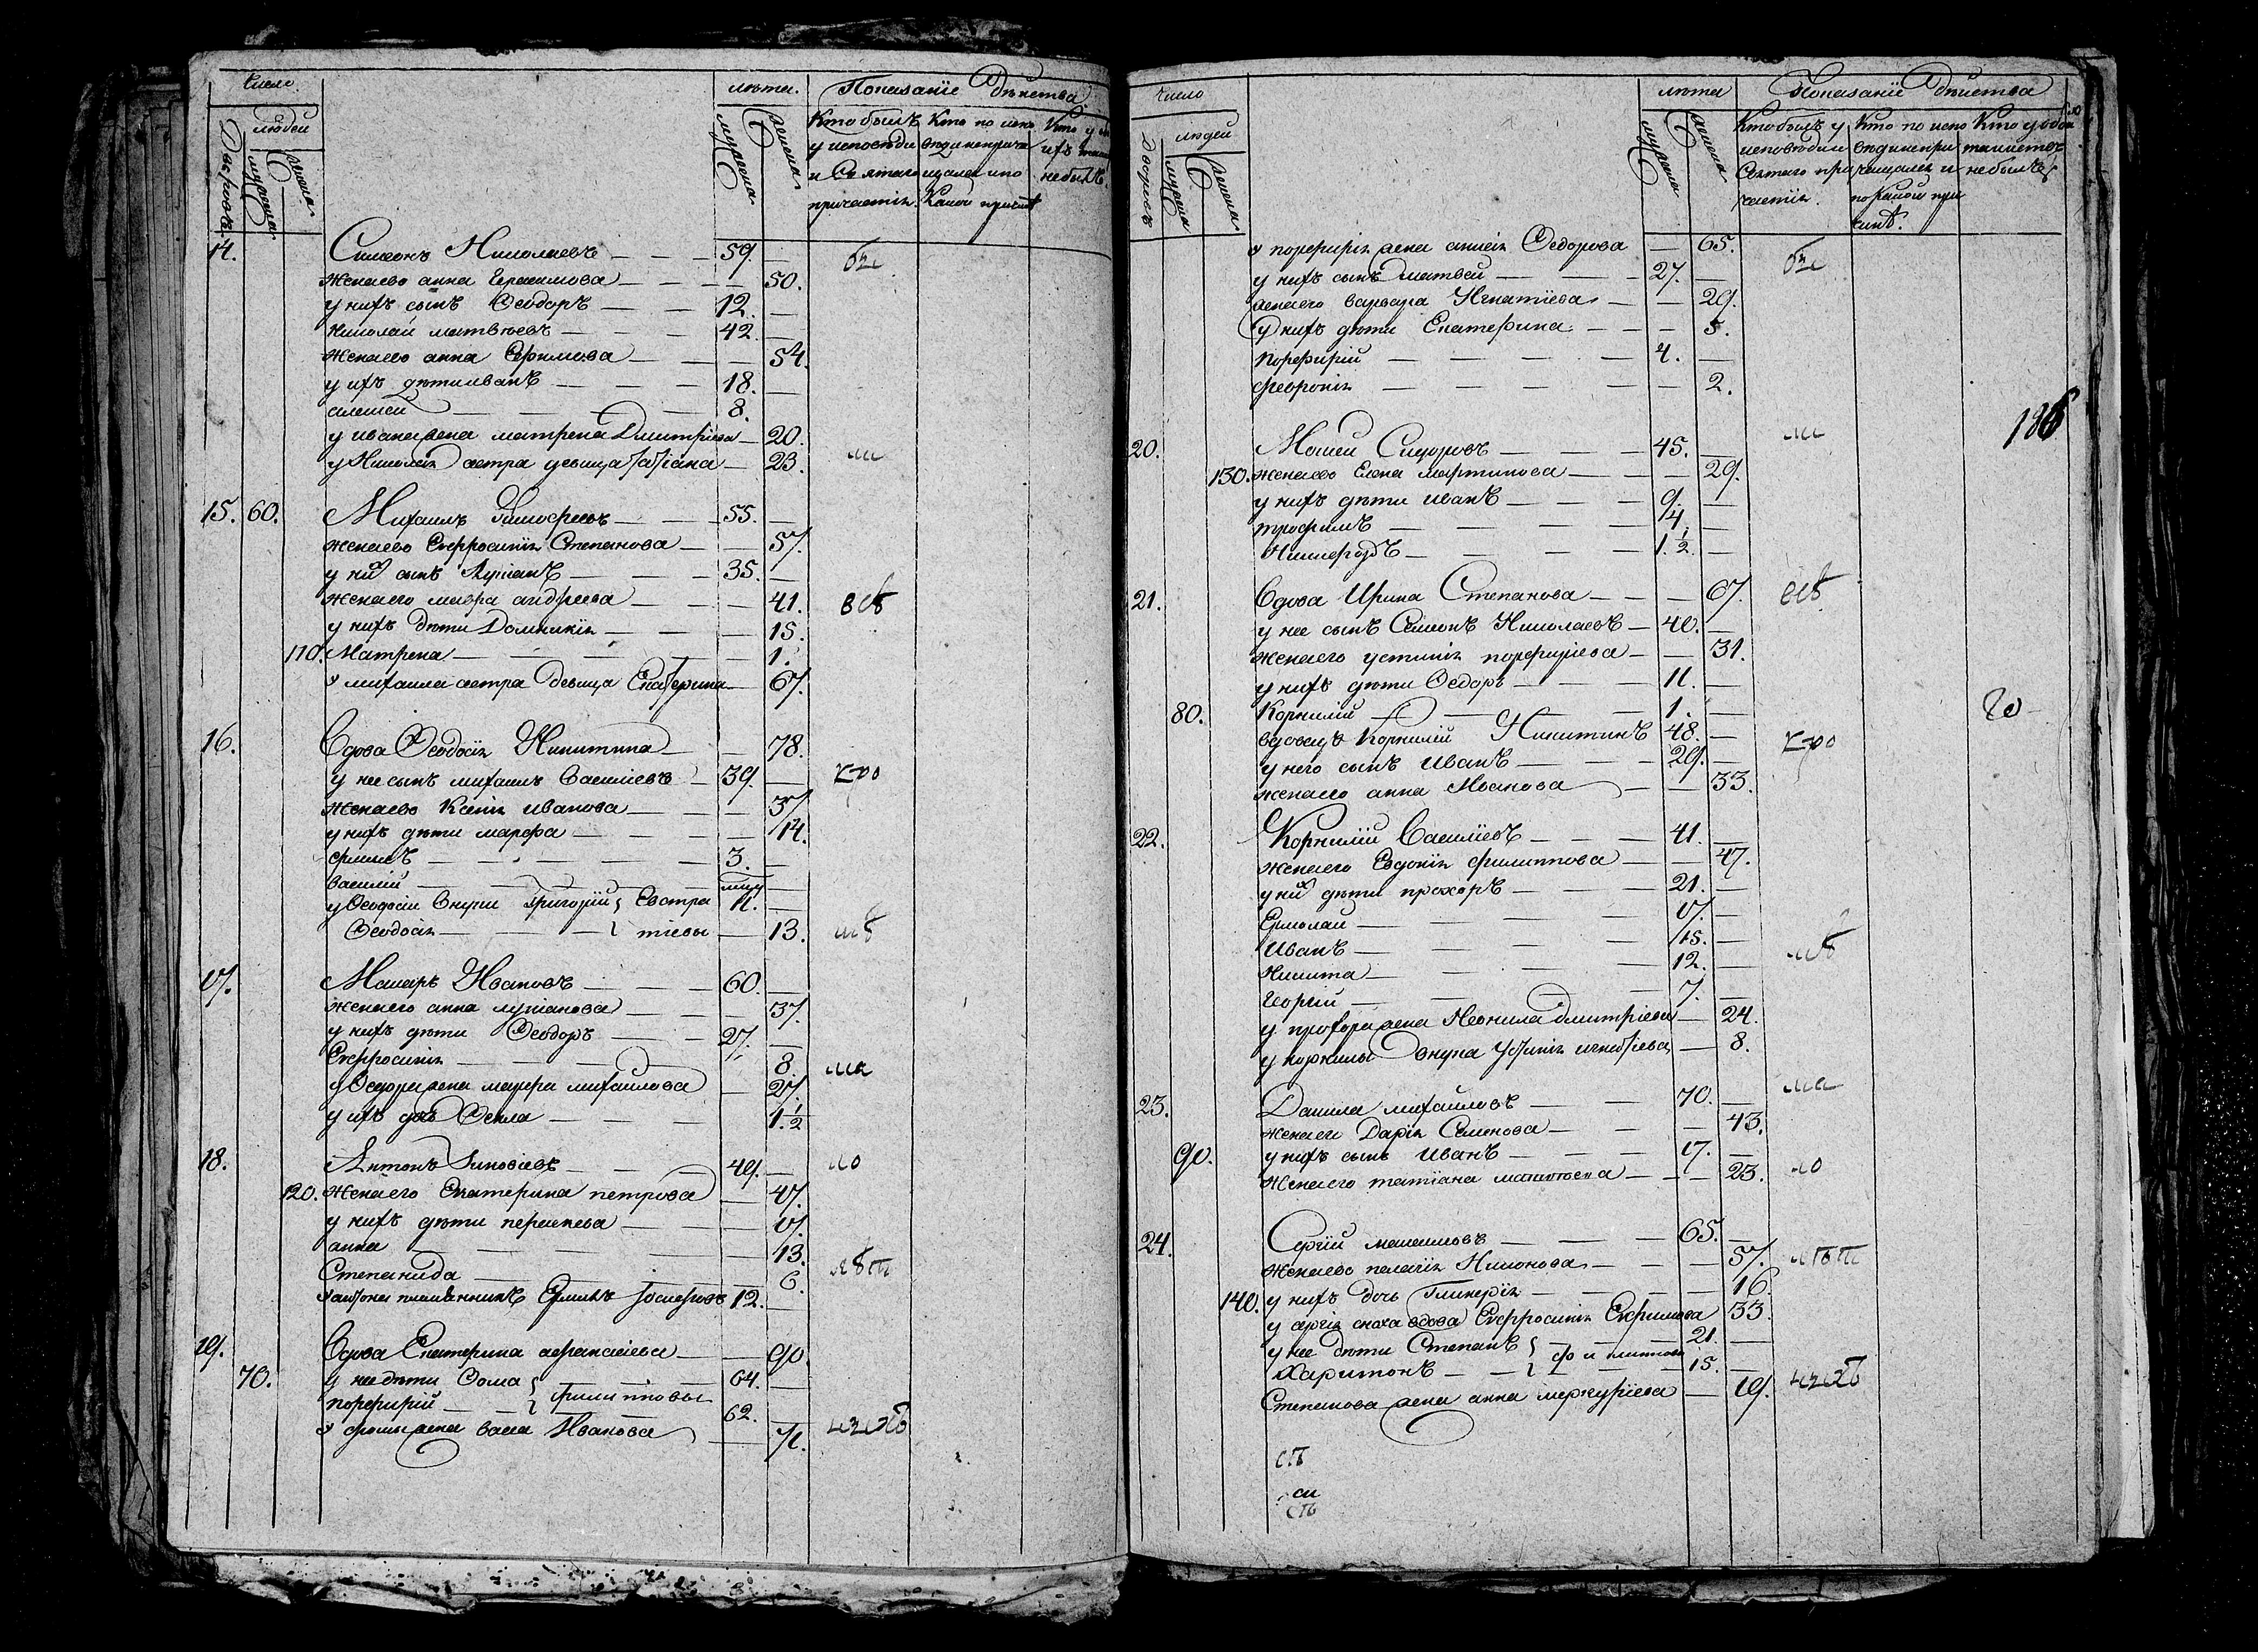 Число
лѣта.
Показанїе дѣйства
людей
Дворовъ
мужеска
женска
мужеска
женска
Кто былъ
у исповѣди
и Святаго
причастїя.
Кто по испо
вѣди не прича
щался и по
какой причинѣ
не былъ
14. Симеонъ Николаевъ 59.
жена ево анна Герасимова 50.
у нихъ сынъ Ѳеодоръ 12.
Николай матвѣевъ 42.
жена ево анна Ефимова 54.
у ихъ дѣти иванъ 18.
алексѣй 8.
у ивана жена матрена Дмитрїева 20.
у Николая сестра девица татїана 23.
15. 60. Михаилъ Тимофеевъ 55.
жена ево Евфросинїя Степанова 57.
у них сынъ Лукїанъ 35.
жена его мавра андреева 41.
у нихъ дѣти Домникїя 15.
110. Матрена 1.
у михаила сестра девица Екатерина 67.
16. Вдова Ѳеодосїя Никитина 78.
у нее сынъ михаилъ Васильевъ 39.
жена ево Ксенїя иванова 37.
у нихъ дѣти марфа 14.
филипъ 3.
василїй
у Ѳеодосїи внуки григорїй Евстра 11.
Ѳеодосїя тїевы 13.
17. Макаръ Ивановъ 60.
жена его анна лукїанова 57.
у нихъ дѣти Ѳеодоръ 27.
Евфросинїя 8.
у Ѳедора жена мавра михайлова 27.
у ихъ дочь Ѳекла 1 1/2
18. Антонъ Зиновїевъ 49.
120. жена его Екатерина петрова 47.
у нихъ дѣти парасковья 17.
анна 13.
Степанида 6.
у антона племянникъ 12.
19. Вдова Екатерина афанасїева 90.
70. у нее дѣти Ѳома 64.
порфирїй филипповы 62.
у фомы жена васса Иванова 71.
всѣ
Число
лѣта
Показанїе дѣйства
людей
Дворовъ
мужеска
женска
мужеска
женска
Кто былъ у
исповѣди и
Святаго при
частїя.
Кто по испо
вѣди не при
чащался и
по какой при
чинѣ.
не былъ
у порфирїя жена Ѳедорова 65.
у нихъ сынъ матвей 27.
жена его варвара Игнатїева 29.
у нихъ дѣти Екатерина 5.
порфирїй 4.
февронїя 2.
186
20. Моисей Сидоровъ 45.
130. жена ево Елена мартинова 29.
у нихъ дѣти иванъ 9.
трофимъ 4.
Никифоръ 1 1/2.
21. Вдова Ирина Степанова 67.
у нее сынъ Симеонъ Николаевъ 40.
жена его устинїя порфирїева 31.
у нихъ дѣти Ѳедоръ 11.
80. Корнилїй 1.
вдовецъ Корнилїй Никитинъ 48.
у него сынъ Иванъ 29.
жена его анна Иванова 33.
22. Корнилїй Васильевъ 41.
жена его Евдокїя филиппова 47.
у них дѣти прохоръ 21.
Ермолай 17.
Иванъ 15.
Никита 12.
Георгїй 7.
у прохора жена Неонила дмитрїева 24.
у корнилы внука Устинїя игнатїева 8.
23. Данила михайловъ 70.
жена его Дарїя Семенова 43.
90. у нихъ сынъ Иванъ 17.
жена его татїана 23.
24. Сергїй максимовъ 65.
жена ево пелагїя Никонова 57.
140. у нихъ дочь Гликерїя 16.
у сергїя сноха вдова Евфросинїя Ефимова 33.
у нее дѣти Степанъ 21.
Харитонъ филиппов 15.
Степанова жена анна меркурїева 19.
всѣ